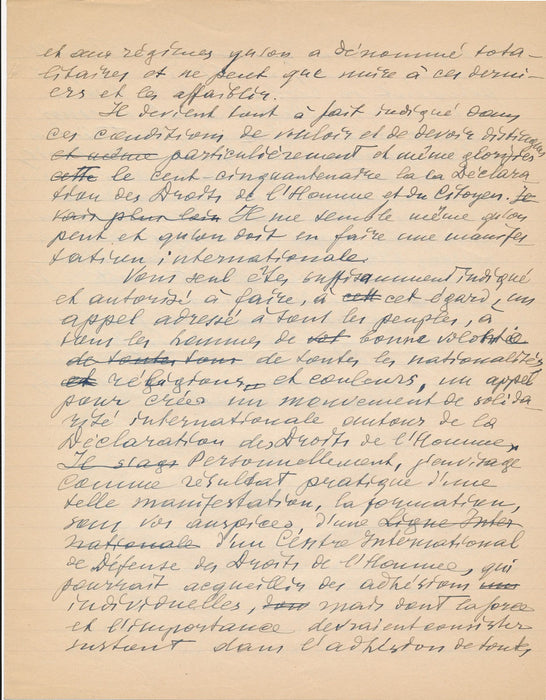 et aux régimes qu'on a dénommé tota-
litaires et ne peut que nuire à ces derni-
ers et les affaiblir.
Il devient tout à fait indiqué dans
ces conditions de vouloir et de devoir distinguer
et même particulièrement et même glorifier
cette le cent-cinquantenaire la la Déclara
tion des Droits de l'Homme et du Citoyen. Je
vais plus loin Il me semble même qu'on
peut et qu'on doit en faire une manifes
tation internationale.
Vous seul êtes suffisamment indiqué
et autorisé à faire, à cet égard, un
appel adressé à tout les peuples, à
tous les hommes de bonne volonté
de toutes tous de toutes les nationalités
et réligions, et couleurs, un appel
pour créer un mouvement de solida
rité internationale autour de la
Déclaration des Droits de l'Homme,
Il s'agi Personnellement, j'envisage
comme résultat pratique d'une
telle manifestation, la formation,
sous vos auspices, d'une Ligue Inter
nationale d'un Centre International
de Défense des Droits de l'Homme, qui
pourrait acqueillir des adhésions
individuelles, mais dont la force
et l'importance devraient consister
surtout dans l'adhésion de toutes